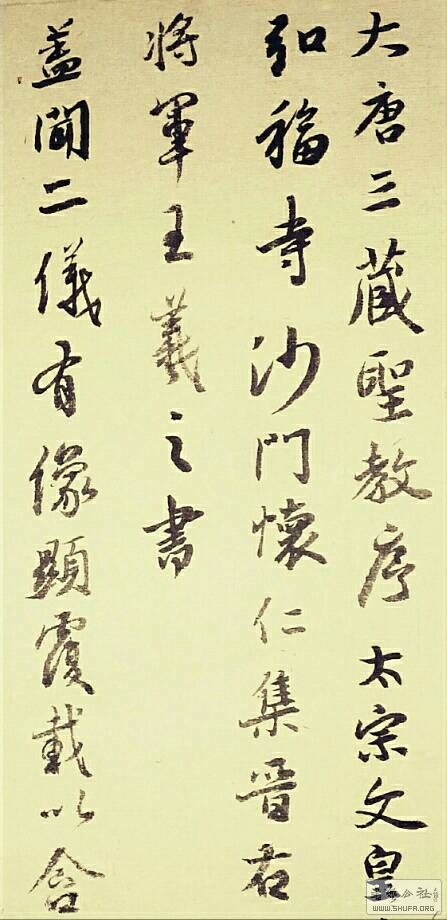 大唐三藏聖教序 太宗文皇
弘福寺沙門懷仁集晉右
將軍王羲之書
蓋聞二儀有像顯覆載以含
WWW.SHUFA.ORG